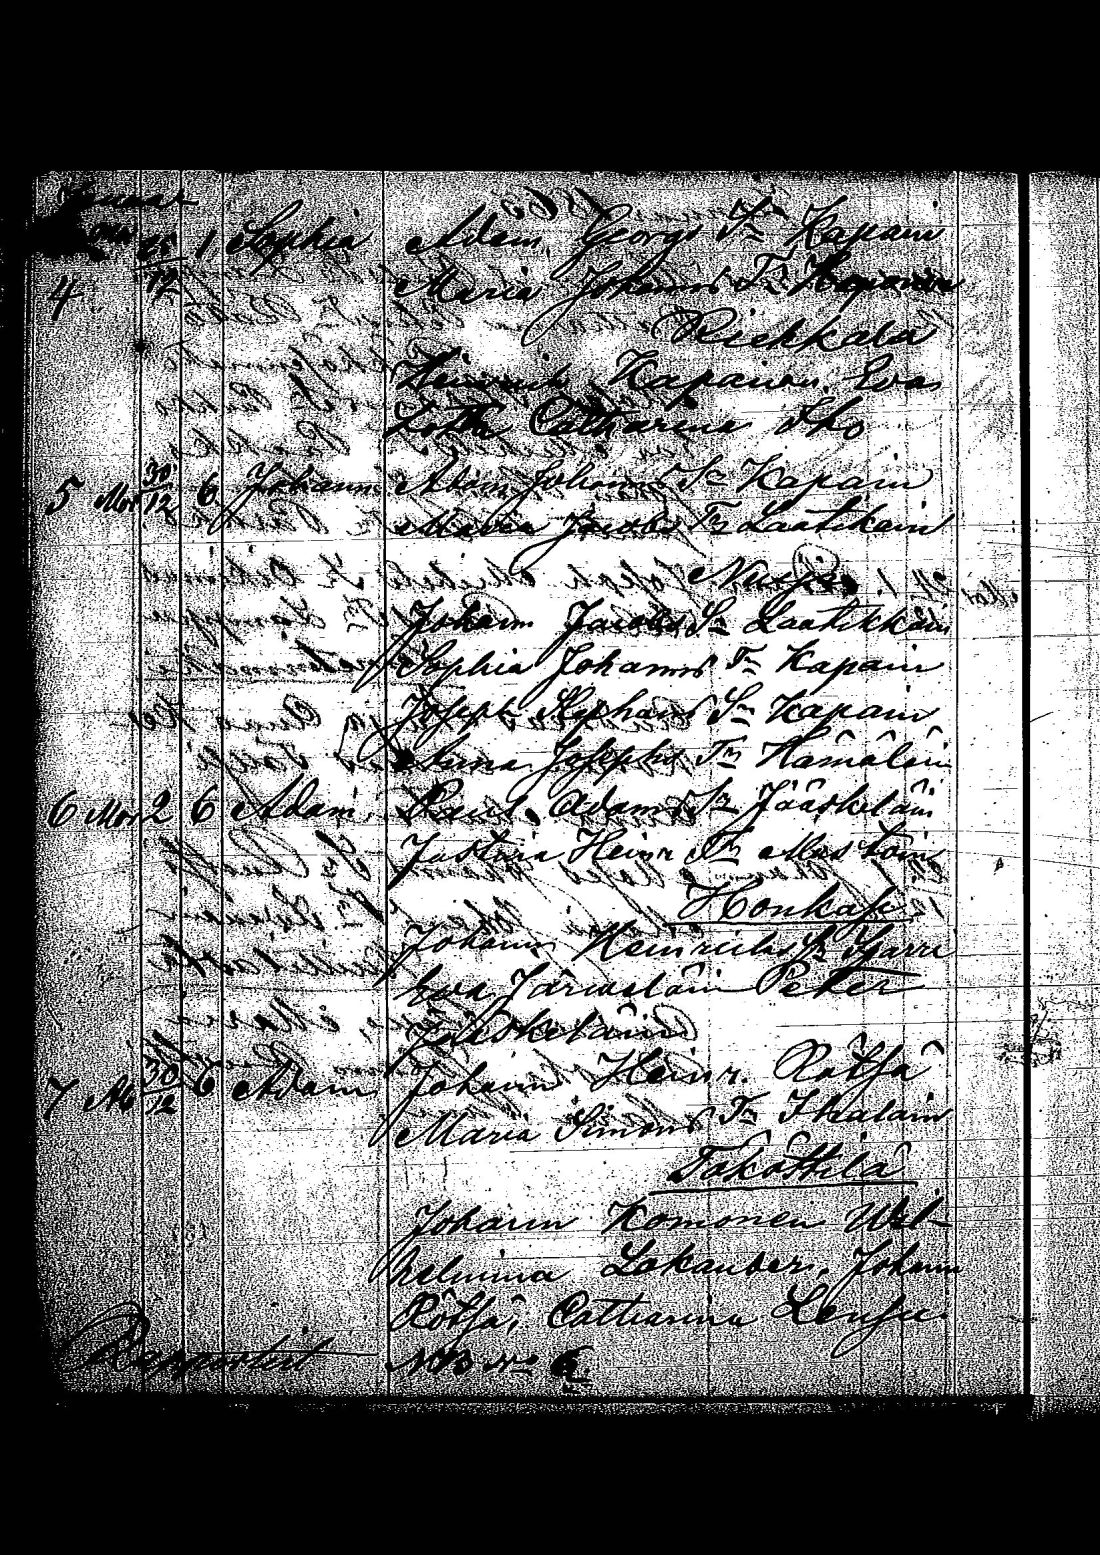 Januar
25/12 1 Sophia Adam Georgs Sn Kapain
4 Maria Johanns Tr Kaponen
Riekkala
Heinrich Kapainen, Eva
Loth Catharina Tho
5 Mor 30/12 6 Johann Adam Johanns Sn Kapain
Maria Jacobs Tr Laatikain
Johann Jacobs Sn Laatikkain
Sophia Johanns Tr Kapain
Joseph Stephans Sn Kapain
Anna Josephs Tr Hämäläin
6 Mor 2 6 Adam Paul Adams Sn Jääskeläin
Justina Heinr Tr Mustoin
Honkasi
Johann Heinrichs Sn
Eva Järveläin Peter
Jääskeläin
7 Ab 30/12 6 Adam Johann Heinr. Rötsä
Maria Simons Tr Ihalain
Takottila
Johann Komonen Wil-
helmina Lokander, Johann
Rötsä, Catharina
Rapporterat NB No 6